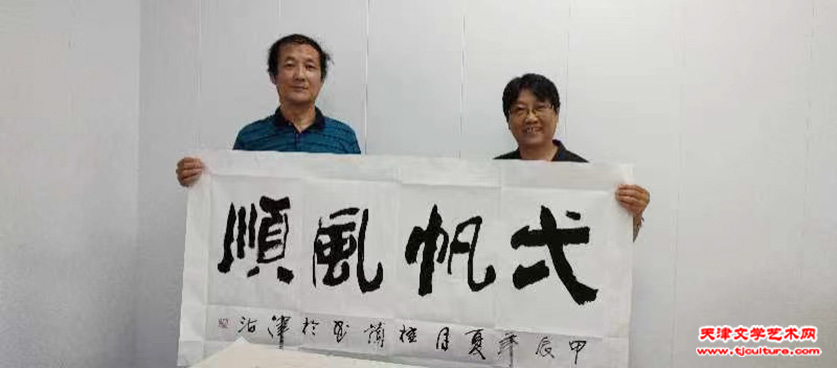 弌帆風順
甲辰年夏月书於津沽
天津文学艺术网
www.tjculture.com